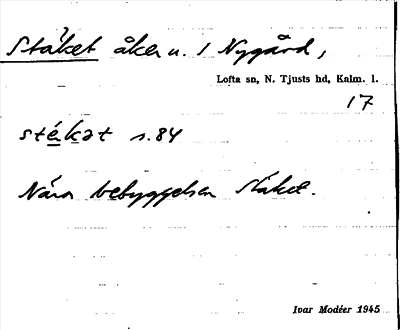 Stäket åker u. 1 Nygård,
Lofta sn, N. Tjusts hd, Kalm. l.
17
stékat s.84
Nära bebyggelsen Stäket.
Ivar Modéer 1945